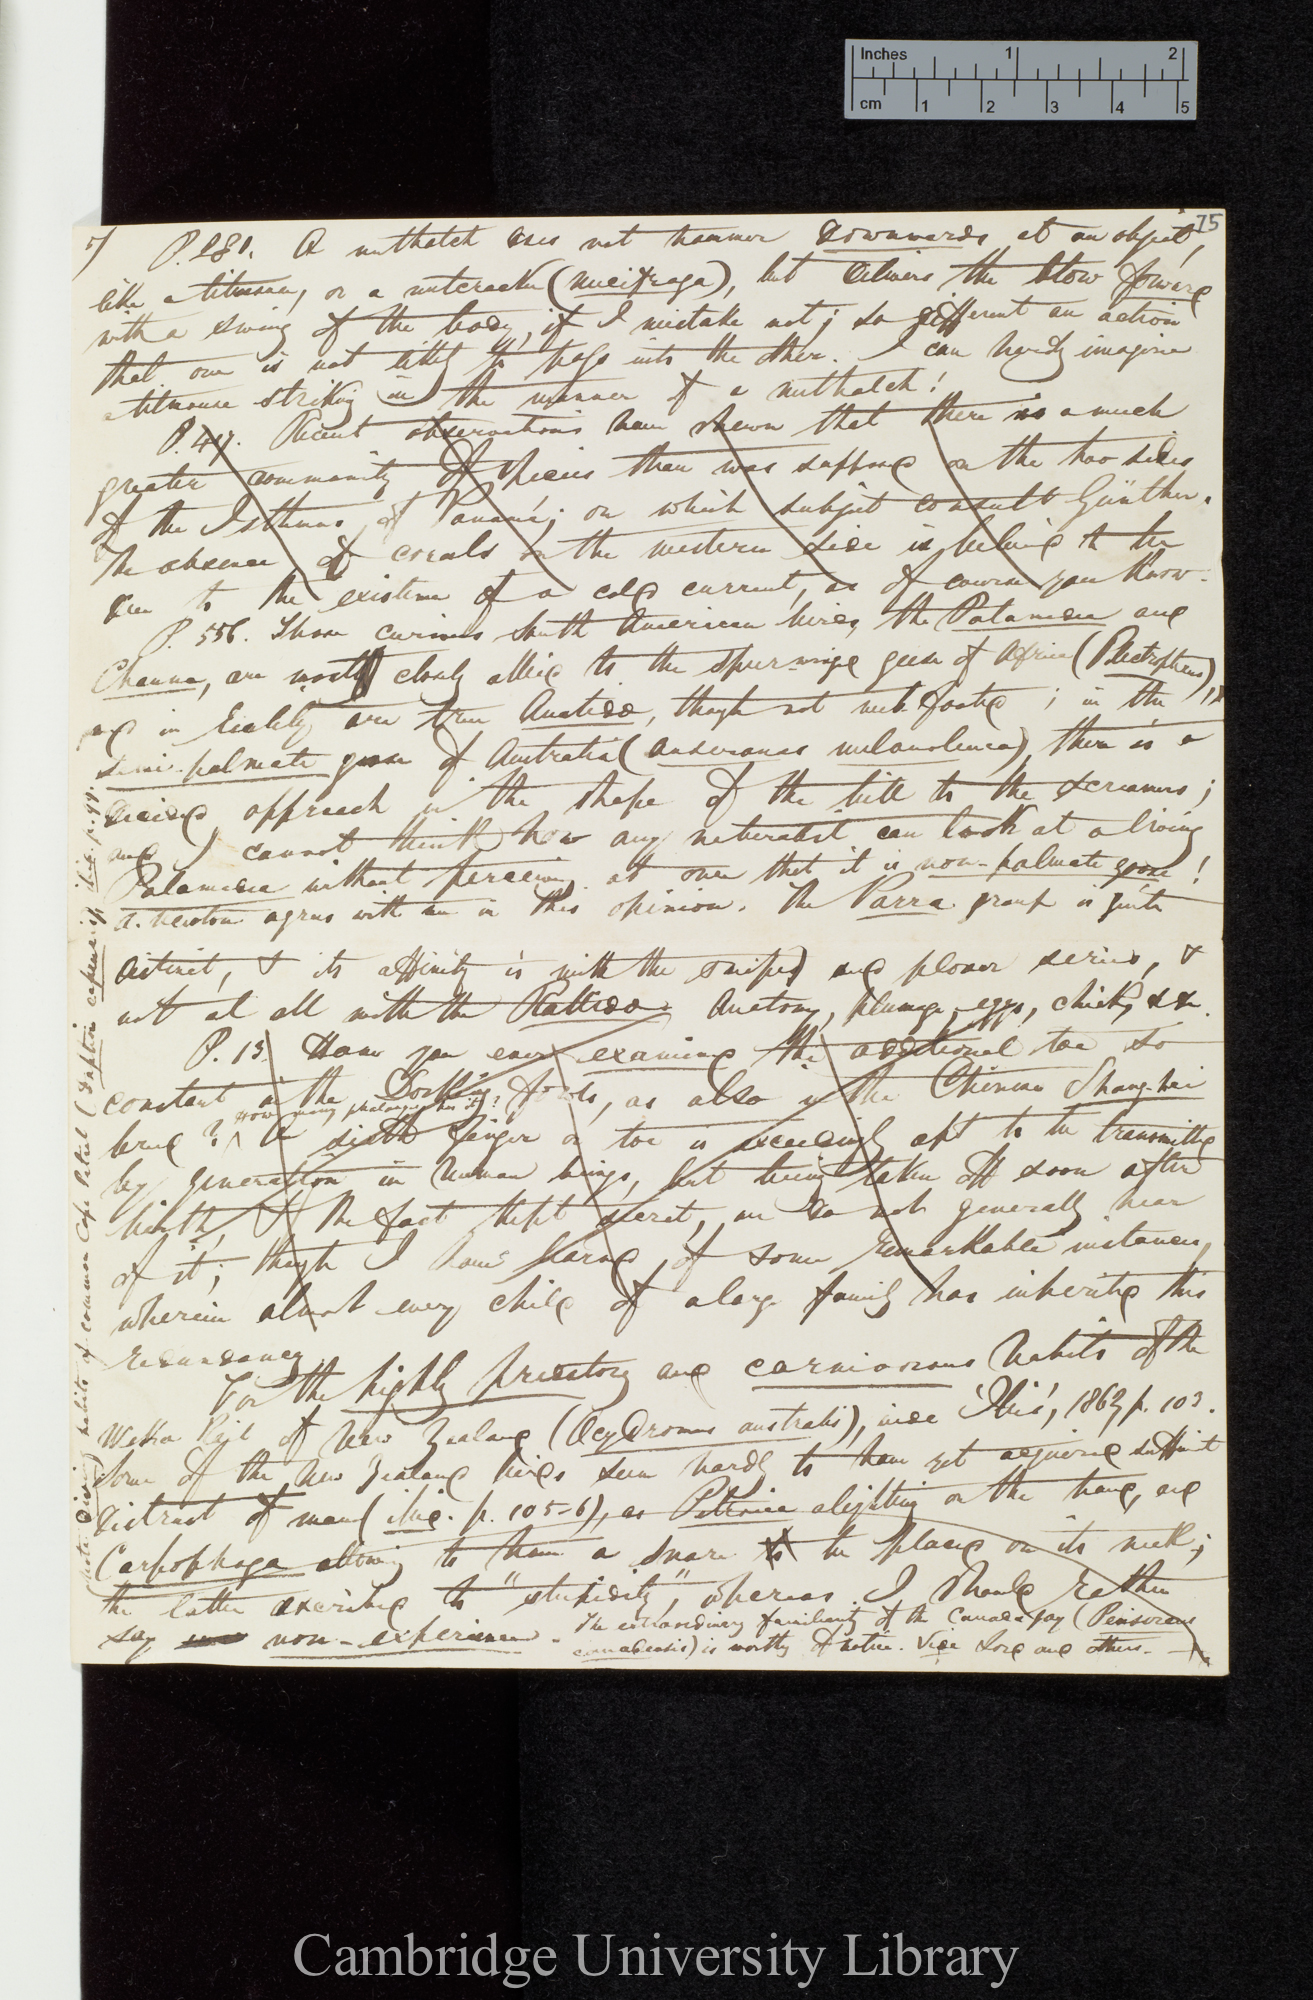 Inches 1 2
cm 1 2 3 4 5
75
7/ P. 280. A nuthatch does not hammer downwards at an object,
like a titmouse, or a nutcracker (Nucifraga), but delivers the blow forward
with a swing of the body, if I mistake not; so different an action
that one is not likely to pass into the other. I can hardly imagine
a titmouse striking in the manner of a nuthatch!
P. 417. Recent observations have shewn that there is a much
greater community of species than was supposed on the two sides
of the Isthmus of Panamá; on which subject consult Günther.
The absence of corals on the western side is believed to be
due to the existence of a cold current, as of course you know.
P. 556. Those curious South American birds, the Palamedea and
Chauna, are most closely allied to the spur-winged geese of Africa (Plectropterus),
and in reality are true Anatidae, though not web footed; in the
semi-palmate goose of Australia (Anseranas melanoleuca), there is a
decided approach in the shape of the bill to the screamers;
and I cannot think how any naturalist can look at a living
Palamedea without perceiving at once that it is non-palmate goose!
A. Newton agrees with me in this opinion. The Parra group is quite
distinct, & its affinity is with the snipes and plover series, &
not at all with the Rallidae. Anatomy, plumage, eggs, chicks, &c &c.
P. 13. Have you ever examined the additional toe so
constant in the Dorking fowls, as also in the Chinese Shang-hai
How many phalanges has it?
breed? A sixth finger or toe is exceedingly apt to be transmitted
by generation in human beings, but being taken off soon after
birth, & the fact kept secret, we do not generally hear
of it; though I have learned of some remarkable instances,
wherein almost every child of a large family has inherited this
redundancy.
For the highly predatory and carnivorous habits of the
Weka Rail of New Zealand (Ocydromus australis), vide 'Ibis', 1862, p. 103.
Some of the New Zealand birds seem hardly to have yet acquired sufficient
distrust of man (ibid. p. 105-6), as Petroica alighting on the hand, and
Carpophaga allowing to have a snare to be placed on its neck;
the latter ascribed to "stupidity", whereas I should rather
say non-experience.
The extraordinary familiarity of the Canada jay (Perisoreus
canadensis) is worthy of notice. Vide Lord and others.
(Note diving habits of common Cape Petrel (Daption capensis) ibid. p. 99.
Cambridge University Library